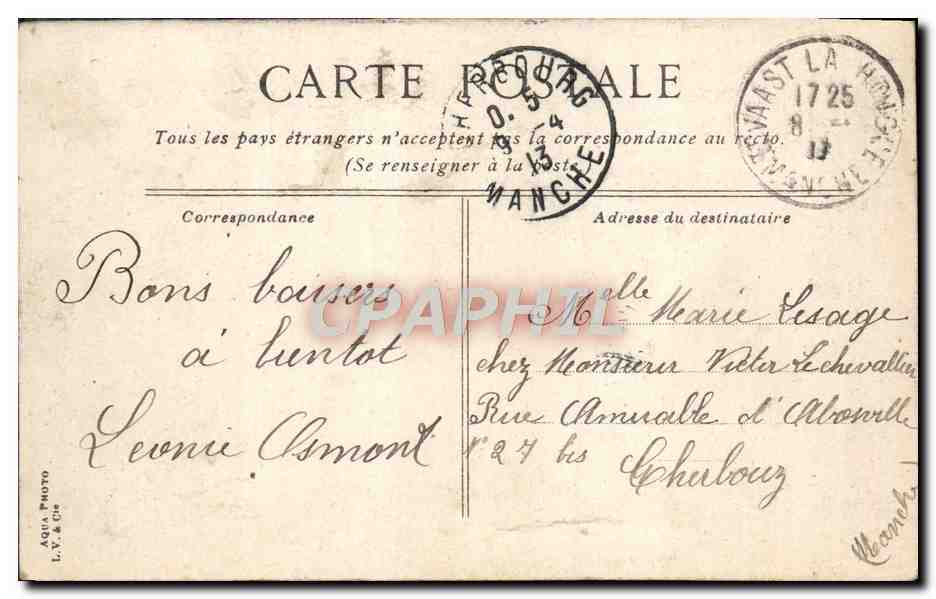 CARTE POSTALE
Tous les pays étrangers n'acceptent pas la correspondance au recto.
(Se renseigner à la poste)
CHERBOURG
0.5
9-4
13
MANCHE
LA
17 25
8
13
MANCHE
Correspondance
Adresse du destinataire
Bons baisers
à bientot
Leonie Osmont
Melle Marie Lesage
chez Monsieur Victor Lechevallier
Rue Amirable d'Aboville
N° 27 bis
Cherbourg
Manche
AQUA PHOTO
L. V. & Cie
CPAPHIL